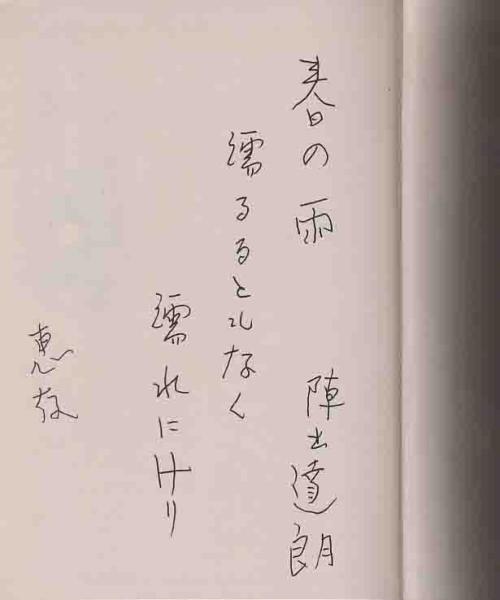 春の雨
陣出達朗
濡るるともなく
濡れにけり
恵存